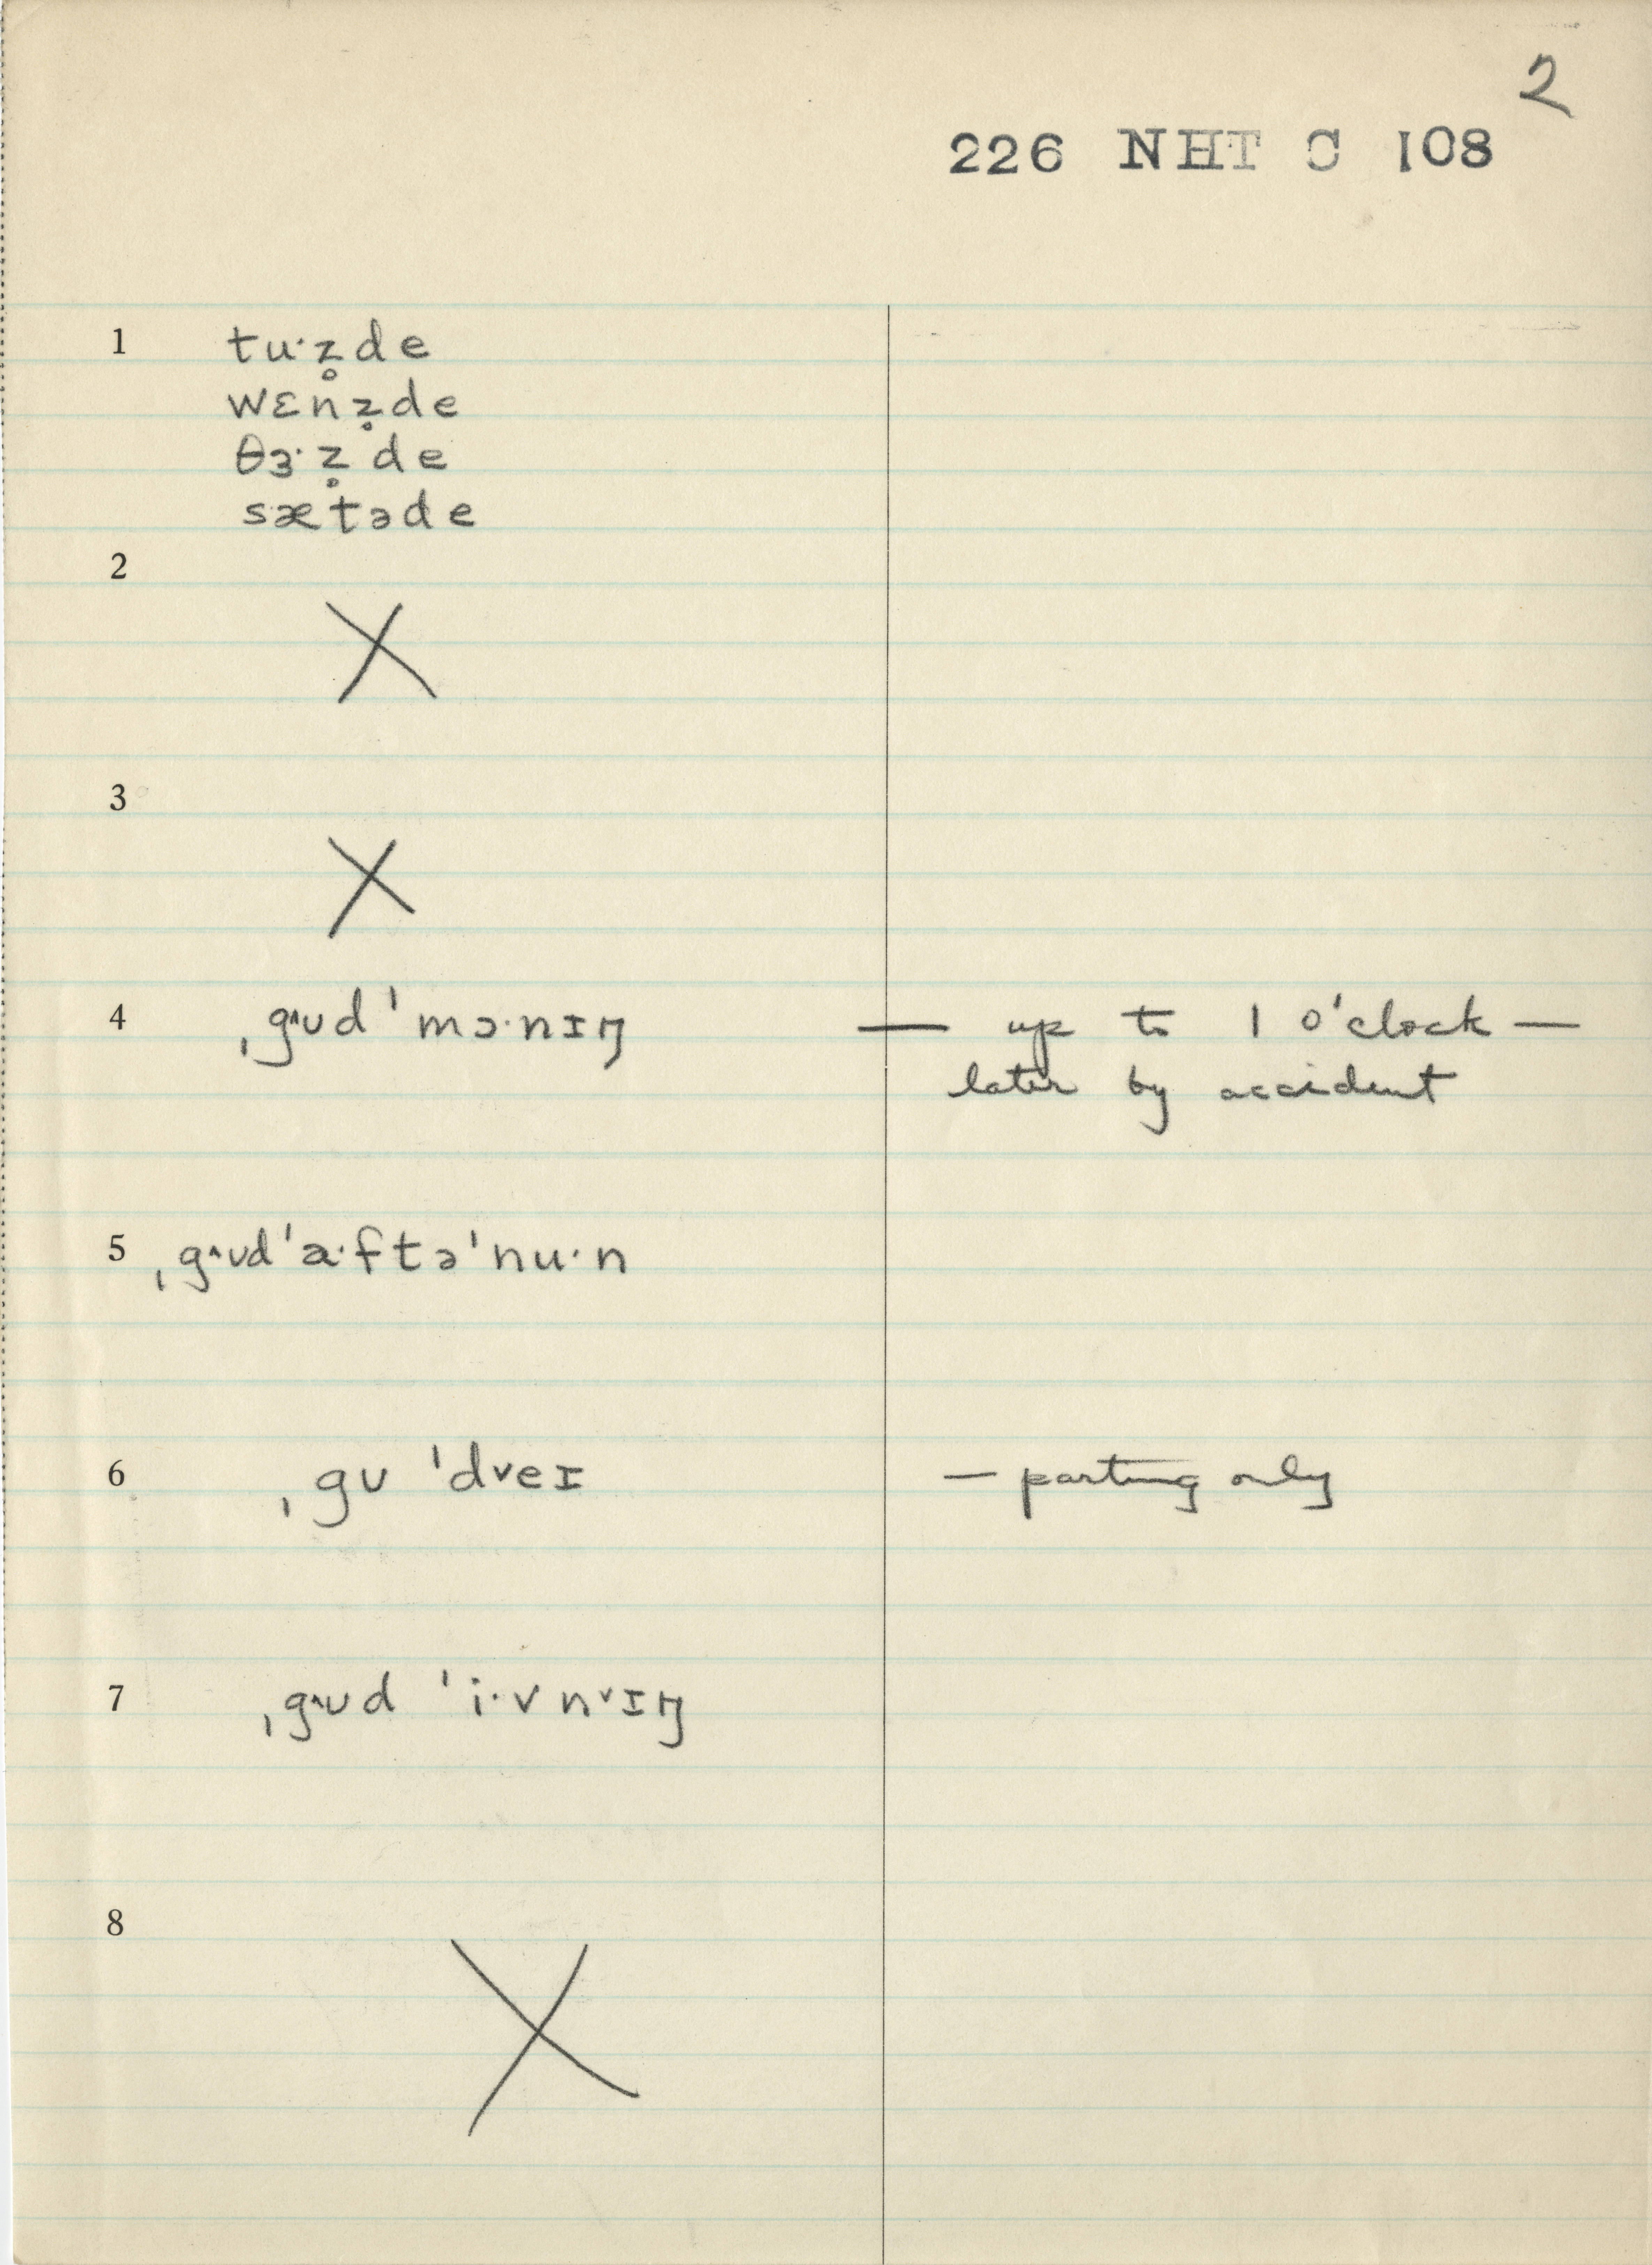 2
226 NHT C 108
1 tu·z̥de
wɛnz̥de
θɜ·z̥de
sætəde
2
X
3
X
4 ˌg˄ʊd ˈmɔ·nɪŋ — up to 1 o'clock —
later by accident
5 ˌg˄ʊdˈa·ftəˈnu·n
6 ˌgʊ ˈd˅eɪ — parting only
7 ˌg˄ʊd ˈi·vn˅ɪŋ
8
X